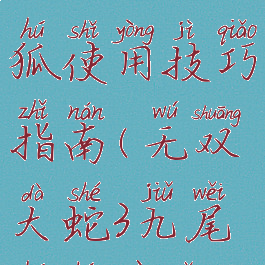 hú shǐ yòng jì qiǎo
狐使用技巧
zhǐ nán wú shuāng
指南(无双
dà shé jiǔ wěi
大蛇3九尾